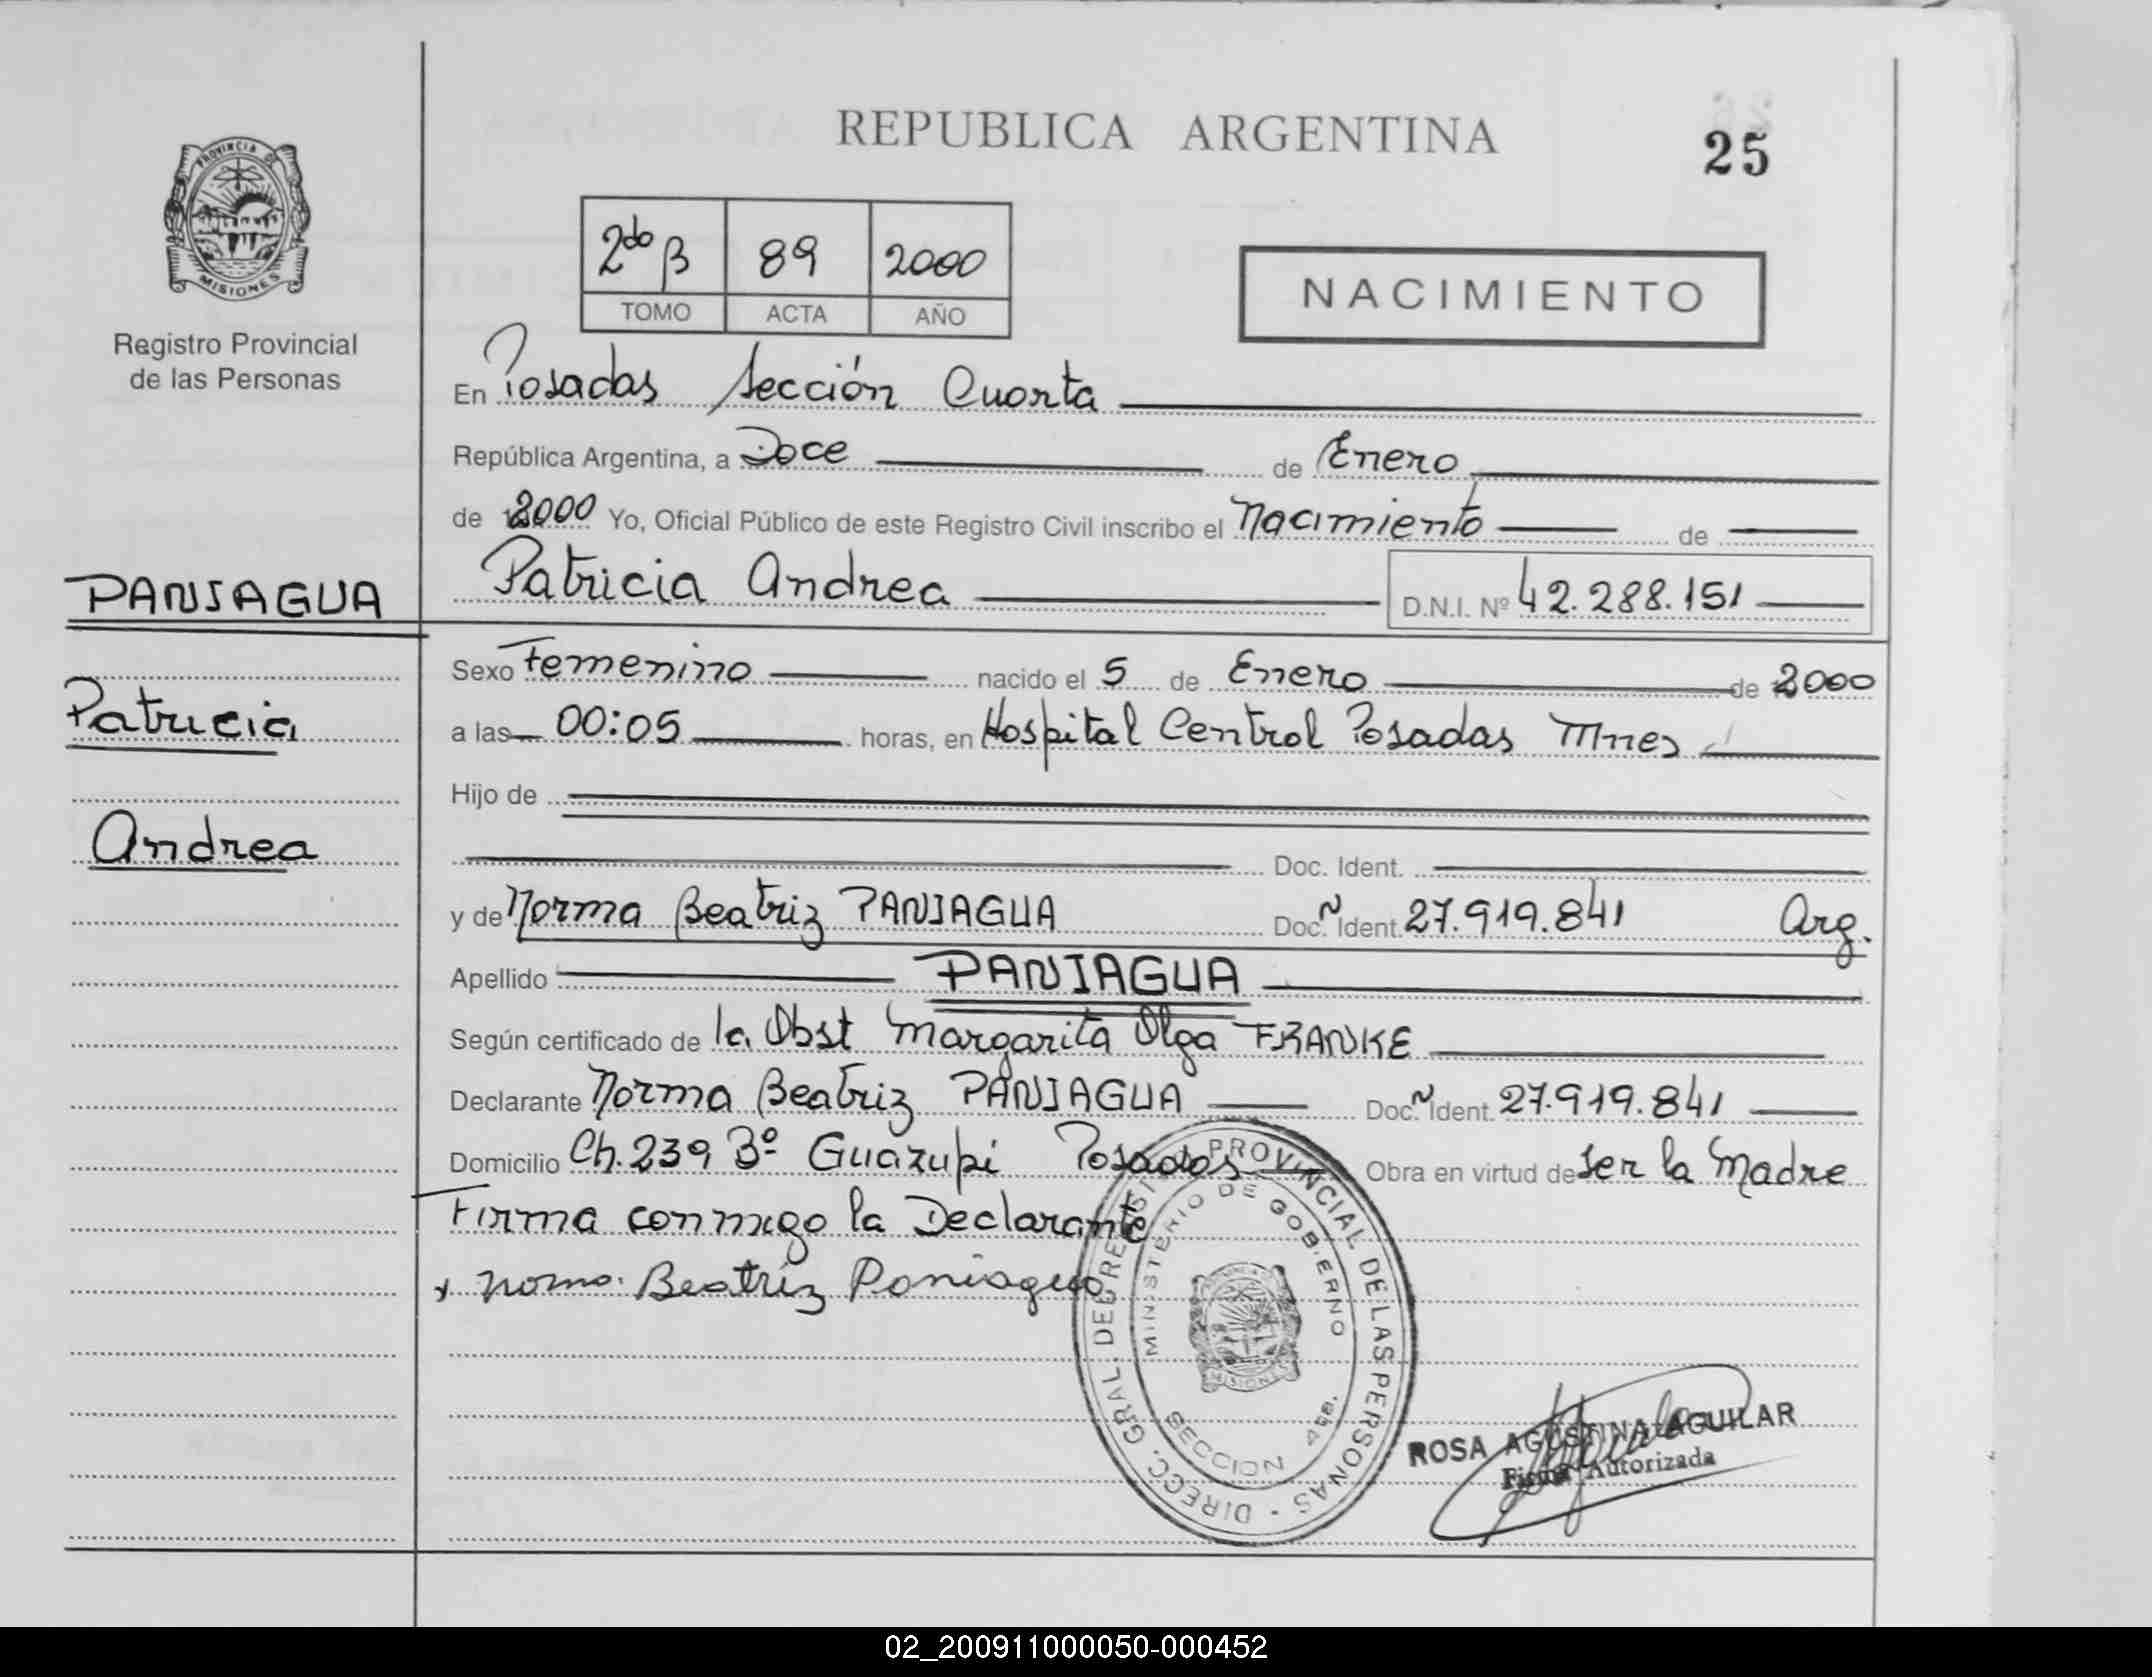 REPUBLICA ARGENTINA
25
PROVINCIA DE
MISIONES
Registro Provincial
de las Personas
2do B 89 2000
TOMO ACTA AÑO
NACIMIENTO
En Posadas Sección Cuarta
República Argentina, a Doce de Enero
de 2000 Yo, Oficial Público de este Registro Civil inscribo el Nacimiento de
PANIAGUA
Patricia Andrea D.N.I. Nº 42.288.151
Sexo Femenino nacido el 5 de Enero de 2000
Patricia
a las 00:05 horas, en Hospital Central Posadas Mnes
Hijo de
Andrea
Doc. Ident.
y de Norma Beatriz PANIAGUA Doc. N Ident. 27.919.841 Arg.
Apellido PANIAGUA
Según certificado de la Obst Margarita Olga FRANKE
Declarante Norma Beatriz PANIAGUA Doc. N Ident. 27.919.841
Domicilio Ch. 239 Bº Guazupi Posadas Obra en virtud de ser la Madre
Firma conmigo la Declarante
x Norma Beatriz Paniagua
DIRECC. GRAL. DEL REGISTRO PROVINCIAL DE LAS PERSONAS
MINISTERIO DE GOBIERNO
MISIONES
SECCION 4ta.
ROSA AGUSTINA AGUILAR
Firma Autorizada
02_200911000050-000452